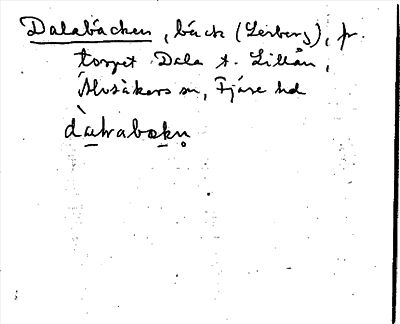 Dalabäcken, bäck (Leiberg), fr.
torpet Dala t. Lillån,
Älvsåkers sn, Fjäre hd
dàlrabækn̥